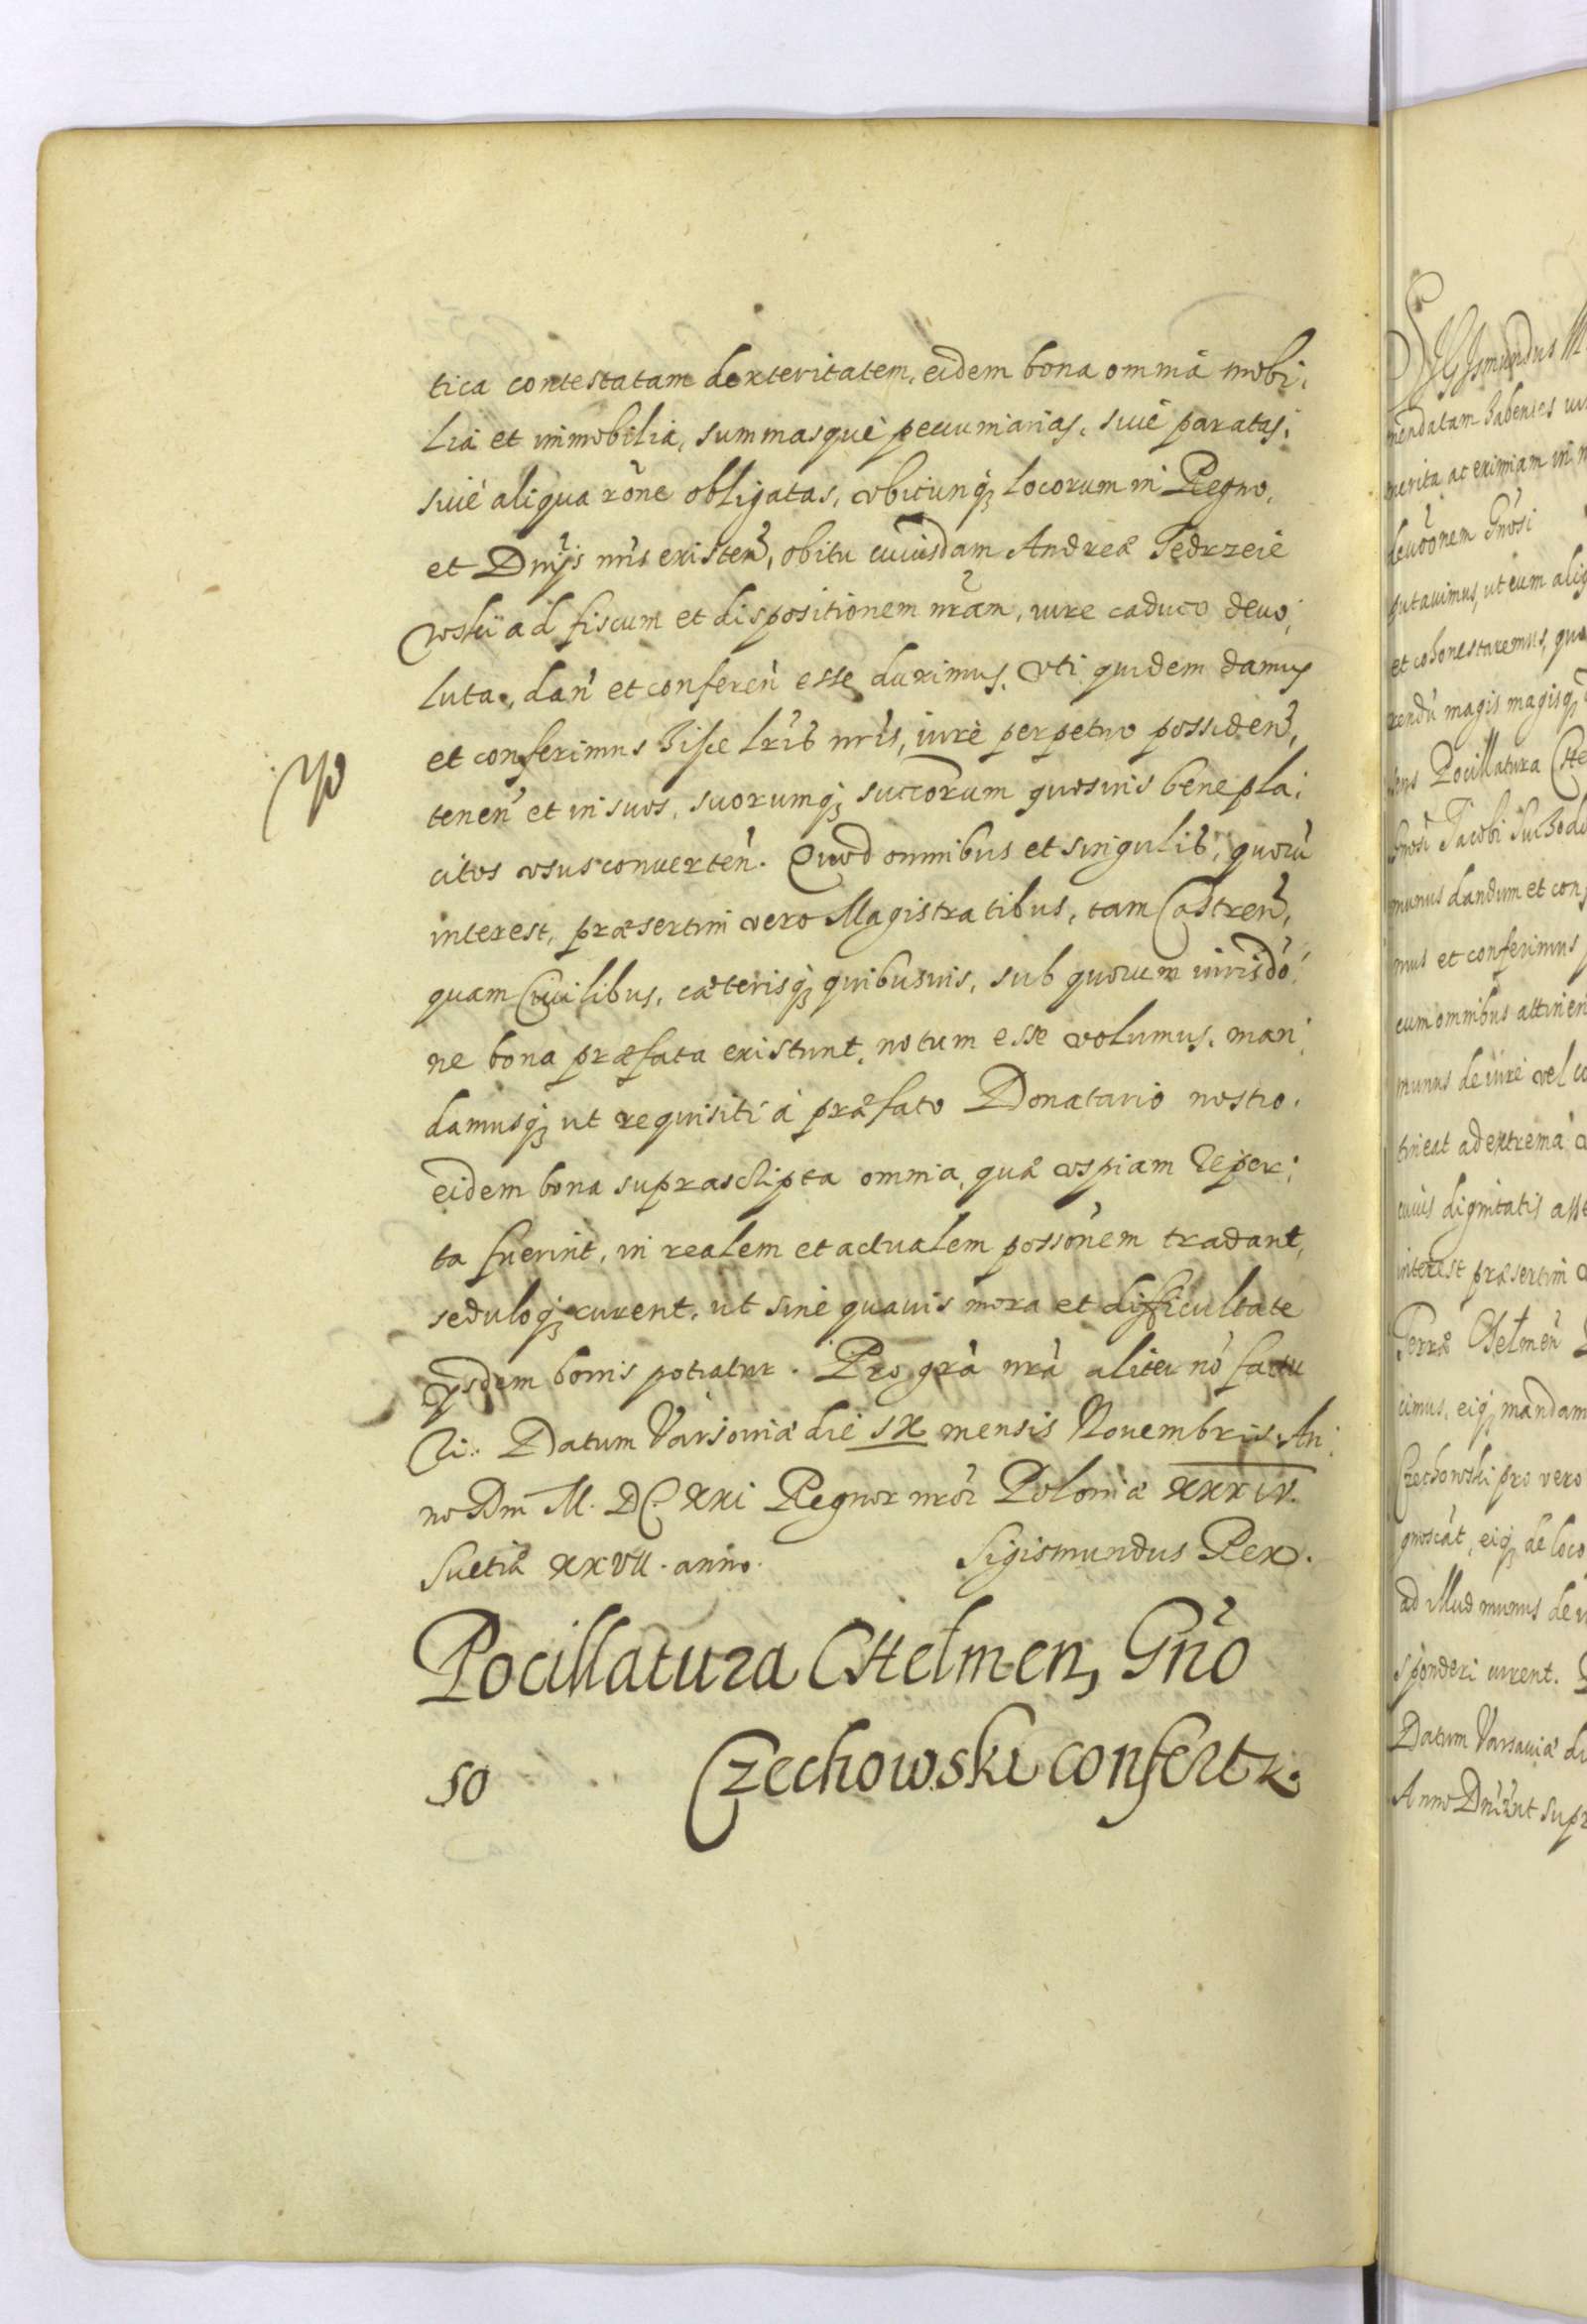 tica contestatam dexteritatem, eidem bona omnia mobi,
lia et immobilia, summasque pecuniarias, siue paratas,
siue aliqua rõne obligatas, vbicunq; locorum in Regno,
et Dnijs nris existen, obitu cuiusdam Andreæ Jedrzeie
wskii ad fiscum et dispositionem nrãm, iure caduco deuo,
luta, dan et conferen esse duximus. Vti quidem damus
et conferimus hisce lrib nris, iure perpetuo possiden,
tenen et in suos, suorumq; succorum quosuis benepla,
citos vsus conuerten. Quod omnibus et singulis, quorũ
interest, præsertim vero Magistratibus, tam Castren,
quam Ciuilibus, cæterisq; quibusuis, sub quorum iurisdõ,
ne bona præfata existunt, notum esse volumus, man,
damusq; ut requisiti à præfato Donatario nostro,
eidem bona suprascripta omnia, quæ vspiam reper,
ta fuerint, in realem et actualem possõnem tradant,
seduloq; curent, ut sine quauis mora et difficultate
ijsdem bonis potiatur. Pro grã nrã aliter nõ factu
ri. Datum Varsouiæ die IX mensis Nouembris An,
no Dni M. DC. XXI Regnor nrõr Poloniæ XXXIV.
Suetiæ XXVII. anno. Sigismundus Rex.
Pocillatura CHelmen, Gño
50 Czechowski confertr.
SIGIsmundus III
mendatam habentes
merita ac eximiam in
deuõonem Gnosi
putauimus, ut eum
et cohonestaremus,
rendũ magis magisq;
Pocillatura
Gnosi Jacobi
munus dandum et con
mus et conferimus
cum omnibus
munus de iure vel
tineat ad extrema
cuius dignitatis
interest præsertim
Terræ Chelmen
cimus, eiq; mandam
Czechowski pro vero
gnoscãt, eiq; de loco
ad illud munus de
sponderi curent.
Datum Varsauiæ
Anno Dni ut supr